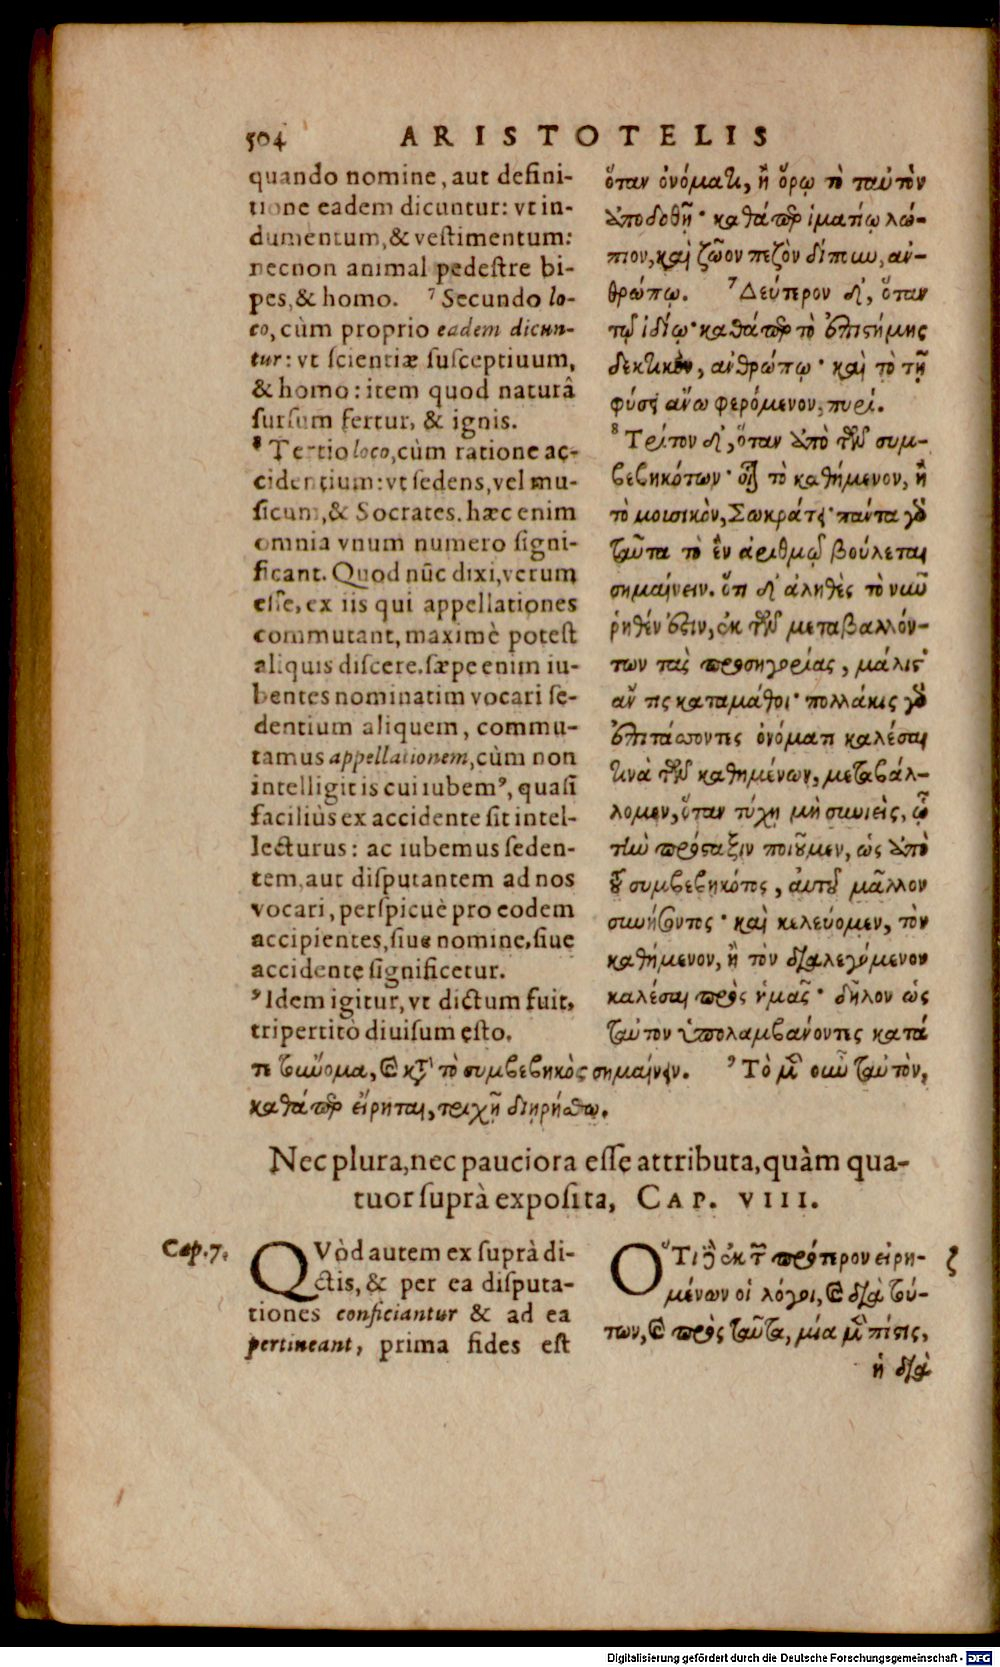 504 ARISTOTELIS
quando nomine, aut defini-
tione eadem dicuntur: vt in-
dumentum, & vestimentum:
necnon animal pedestre bi-
pes, & homo. ⁷ Secundo lo-
co, cùm proprio eadem dicun-
tur: vt scientiæ susceptiuum,
& homo: item quod naturâ
sursum fertur, & ignis.
⁸ Tertio loco, cùm ratione ac-
cidentium: vt sedens, vel mu-
sicum, & Socrates. hæc enim
omnia vnum numero signi-
ficant. Quod nũc dixi, verum
esse, ex iis qui appellationes
commutant, maximè potest
aliquis discere. sæpe enim iu-
bentes nominatim vocari se-
dentium aliquem, commu-
tamus appellationem, cùm non
intelligit is cui iubemꝰ, quasi
faciliùs ex accidente sit intel-
lecturus: ac iubemus seden-
tem, aut disputantem ad nos
vocari, perspicuè pro eodem
accipientes, siue nomine, siue
accidente significetur.
⁹ Idem igitur, vt dictum fuit,
tripertitò diuisum esto.
ὅταν ὀνόματι, ἢ ὅρῳ τὸ ταὐτὸν
ἀποδοθῇ· καθάπερ ἱματίῳ λώ-
πιον, καὶ ζῶον πεζὸν δίπουν, ἀν-
θρώπῳ. ⁷ Δεύτερον δ', ὅταν
τῷ ἰδίῳ· καθάπερ τὸ ἐπιστήμης
δεκτικὸν, ἀνθρώπῳ· καὶ τὸ τῇ
φύσει ἄνω φερόμενον, πυρί.
⁸ Τρίτον δ', ὅταν ἀπὸ τῶν συμ-
βεβηκότων· οἷον τὸ καθήμενον, ἢ
τὸ μουσικὸν, Σωκράτει· πάντα γὸ
ταῦτα τὸ ἓν ἀριθμῷ βούλεται
σημαίνειν. ὅτι δ' ἀληθὲς τὸ νῦν
ῥηθέν ἐστιν, ἐκ τῶν μεταβαλλόν-
των τὰς προσηγορίας, μάλιστ'
ἄν τις καταμάθοι· πολλάκις γὸ
ἐπιτάσσοντες ὀνόματι καλέσαι
τινὰ τῶν καθημένων, μεταβάλ-
λομεν, ὅταν τύχῃ μὴ συνιεὶς, ᾧ
τὴν πρόσταξιν ποιοῦμεν, ὡς ἀπὸ
τοῦ συμβεβηκότος, αὐτοῦ μᾶλλον
συνήσοντος· καὶ κελεύομεν, τὸν
καθήμενον, ἢ τὸν διαλεγόμενον
καλέσαι πρὸς ἡμᾶς· δῆλον ὡς
ταὐτὸν ὑπολαμβάνοντες κατά
τε τοὔνομα, καὶ κατὰ τὸ συμβεβηκὸς σημαίνειν. ⁹ Τὸ μὲν οὖν ταὐτὸν,
καθάπερ εἴρηται, τριχῇ διῃρήσθω.
Nec plura, nec pauciora esse attributa, quàm qua-
tuor suprà exposita, CAP. VIII.
Cap. 7.
QVòd autem ex suprà di-
ctis, & per ea disputa-
tiones conficiantur & ad ea
pertineant, prima fides est
ὍΤι δ' ἐκ τῶν πρότερον εἰρη-
μένων οἱ λόγοι, καὶ διὰ τού-
των, καὶ πρὸς ταῦτα, μία μὲν πίστις,
ζ
ἡ διὰ
Digitalisierung gefördert durch die Deutsche Forschungsgemeinschaft - DFG